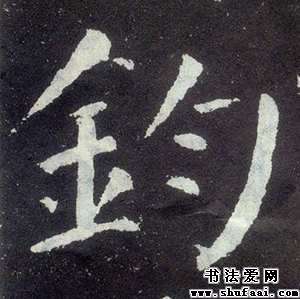 鈞
书法爱网
www.shufaai.com